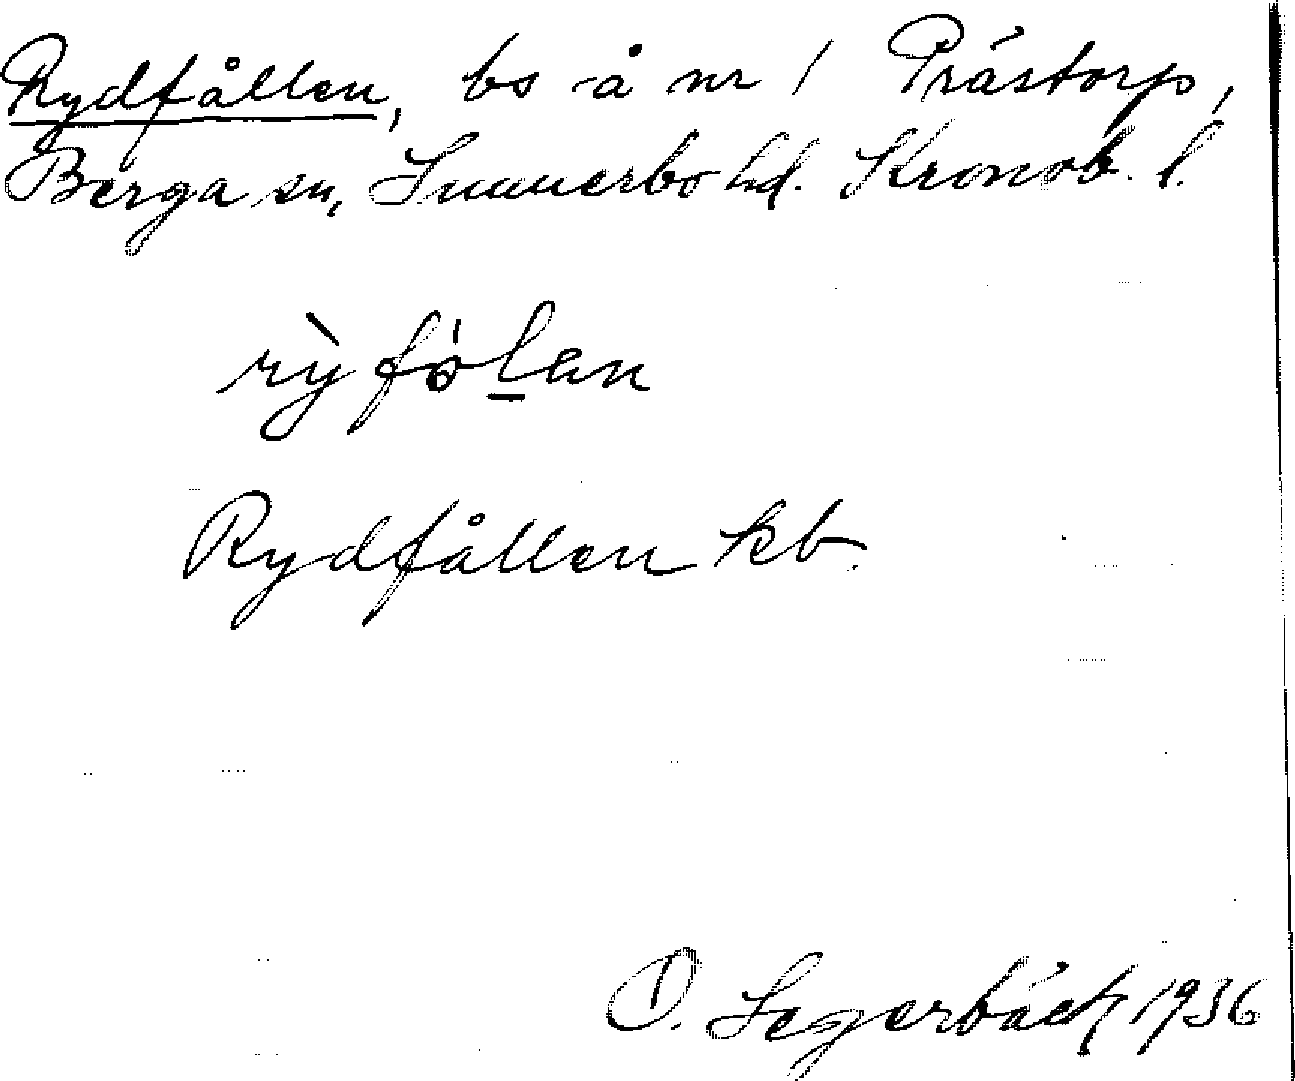 Rydfållen, bs å nr 1 Prästorp,
Berga sn, Sunnerbo hd. Kronob. l.
rỳfólan
Rydfållen kb.
O. Segerbäck 1936